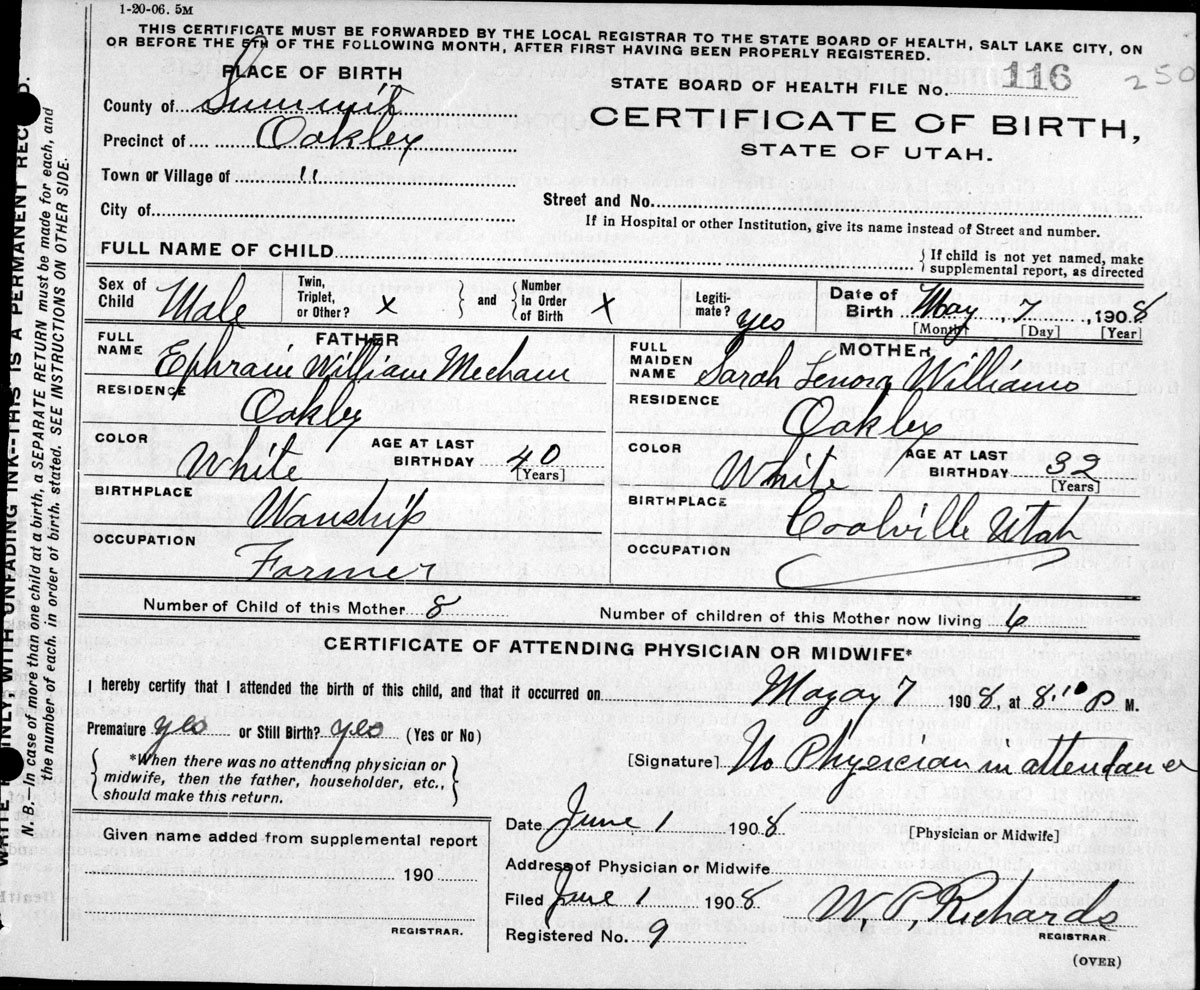 1-20-06. 5M
THIS CERTIFICATE MUST BE FORWARDED BY THE LOCAL REGISTRAR TO THE STATE BOARD OF HEALTH, SALT LAKE CITY, ON
OR BEFORE THE 5TH OF THE FOLLOWING MONTH, AFTER FIRST HAVING BEEN PROPERLY REGISTERED.
PLACE OF BIRTH
STATE BOARD OF HEALTH FILE No. 116 250
County of Summit
CERTIFICATE OF BIRTH,
Precinct of Oakley
STATE OF UTAH.
Town or Village of "
City of
Street and No.
If in Hospital or other Institution, give its name instead of Street and number.
FULL NAME OF CHILD
{ If child is not yet named, make
supplemental report, as directed
Sex of Child Male
Twin, Triplet, or Other? X } and { Number In Order of Birth X
Legiti-mate? yes
Date of Birth May, 7, 1908
[Month] [Day] [Year]
FATHER
FULL NAME Ephraim William Mecham
RESIDENCE Oakley
COLOR White AGE AT LAST BIRTHDAY 40 [Years]
BIRTHPLACE Wanship
OCCUPATION Farmer
MOTHER
FULL MAIDEN NAME Sarah Lenora Williams
RESIDENCE Oakley
COLOR White AGE AT LAST BIRTHDAY 32 [Years]
BIRTHPLACE Coolville Utah
OCCUPATION
Number of Child of this Mother 8 Number of children of this Mother now living 6
CERTIFICATE OF ATTENDING PHYSICIAN OR MIDWIFE*
I hereby certify that I attended the birth of this child, and that it occurred on Mayay 7 1908, at 8:10 P M.
Premature yes or Still Birth? yes (Yes or No)
{ *When there was no attending physician or
midwife, then the father, householder, etc.,
should make this return. }
[Signature] No Physician in attendance
Date June 1 1908 [Physician or Midwife]
Given name added from supplemental report
190
REGISTRAR.
Address of Physician or Midwife
Filed June 1 1908 W. P. Richards
REGISTRAR.
Registered No. 9
(OVER)
INLY, WITH UNFADING INK--THIS IS A PERMANENT REC D.
N.B.—In case of more than one child at a birth, a SEPARATE RETURN must be made for each, and
the number of each, in order of birth, stated. SEE INSTRUCTIONS ON OTHER SIDE.